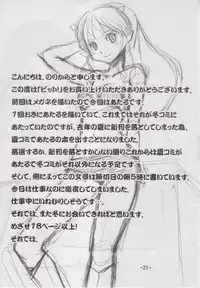 こんにちは、のりからと申します。
この度は「ビッたり」をお買い上げいただきありがとうございます。
前回はメガネを描いたので今回はあたるです。
7回おきにあたるを描いていて、これまではそれが冬コミに
あたっていたのですが、去年の夏に新刊を落としてしまった為、
夏コミであたるの本を出すことになりました。
落選するか、新刊を落とすかしない限りこれからは夏コミが
あたるで冬コミがそれ以外になる予定です。
そして、例によってこの文章は締切日の朝5時に書いています。
今日は仕事なのに徹夜してしまいました。
仕事中にいねむりしそうです。
それでは、また冬にお会いできればと思います。
めざせ78ページ以上!
それでは。
-21-